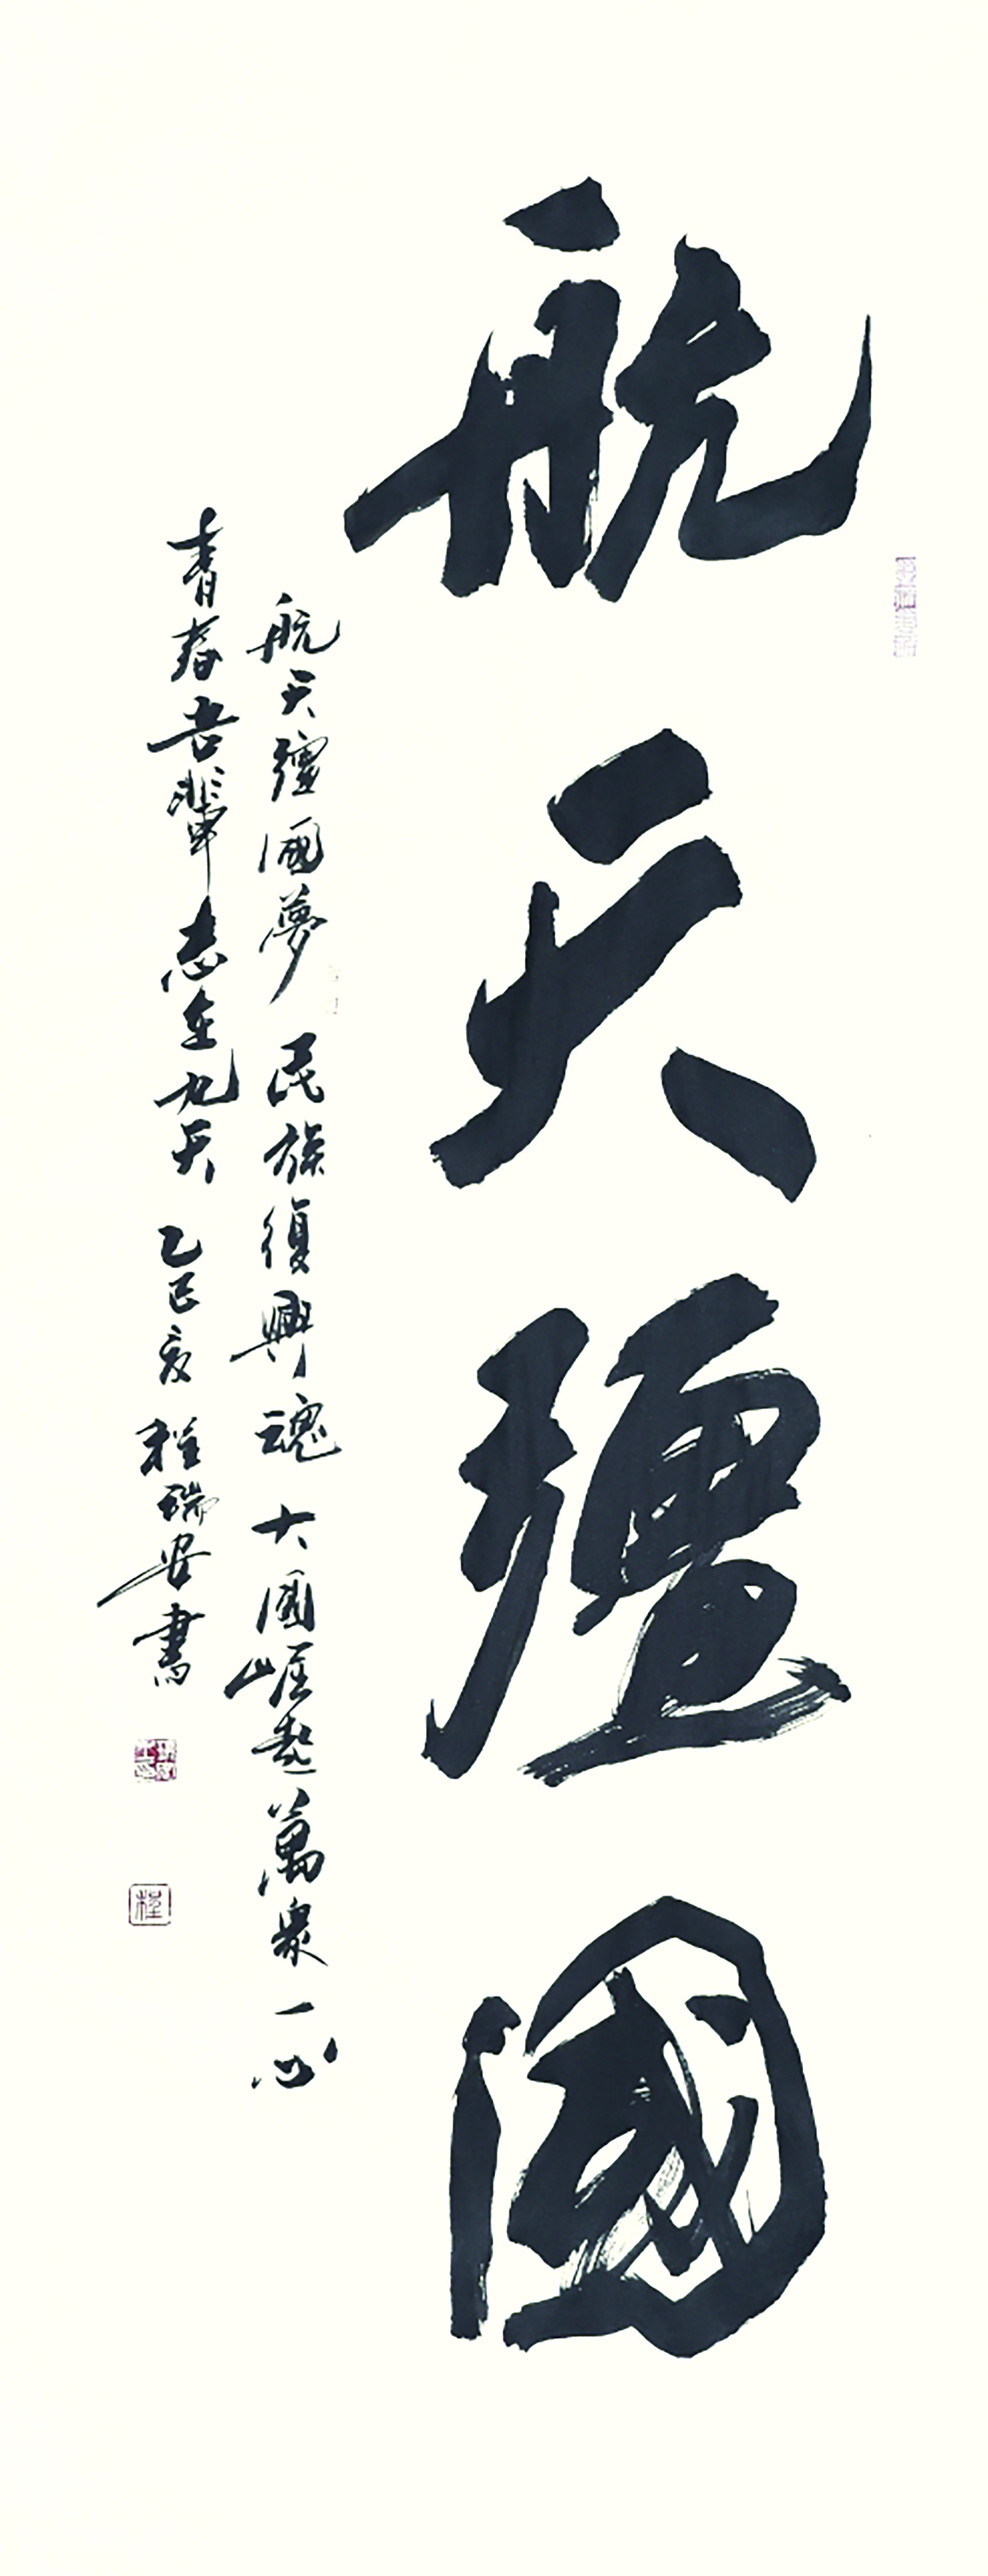 航天彊國
航天彊國夢 民族復興魂 大國崛起萬衆一心
青春吾輩志在九天 乙巳夏 程瑞安書
程